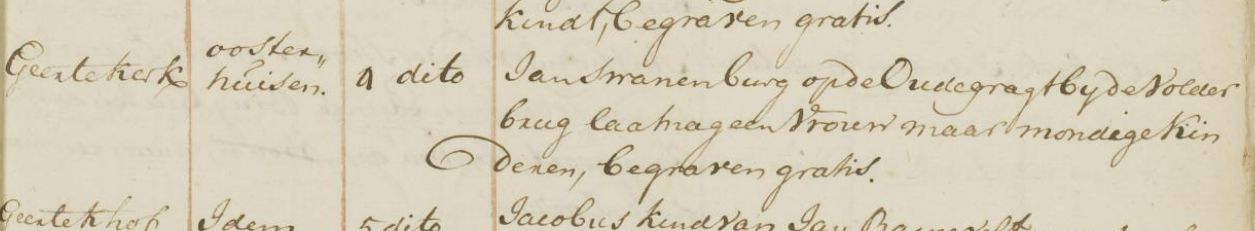 kindt, begraven gratis.
Geertekerk ooster„ huisen. 1 dito Jan Swanenburg op de Oudegragt by de Volder
brug laat nageen vrouw maar mondige Kin
deren, begraven gratis.
Geertekhof Idem 5 dito Jacobus kind van Jan